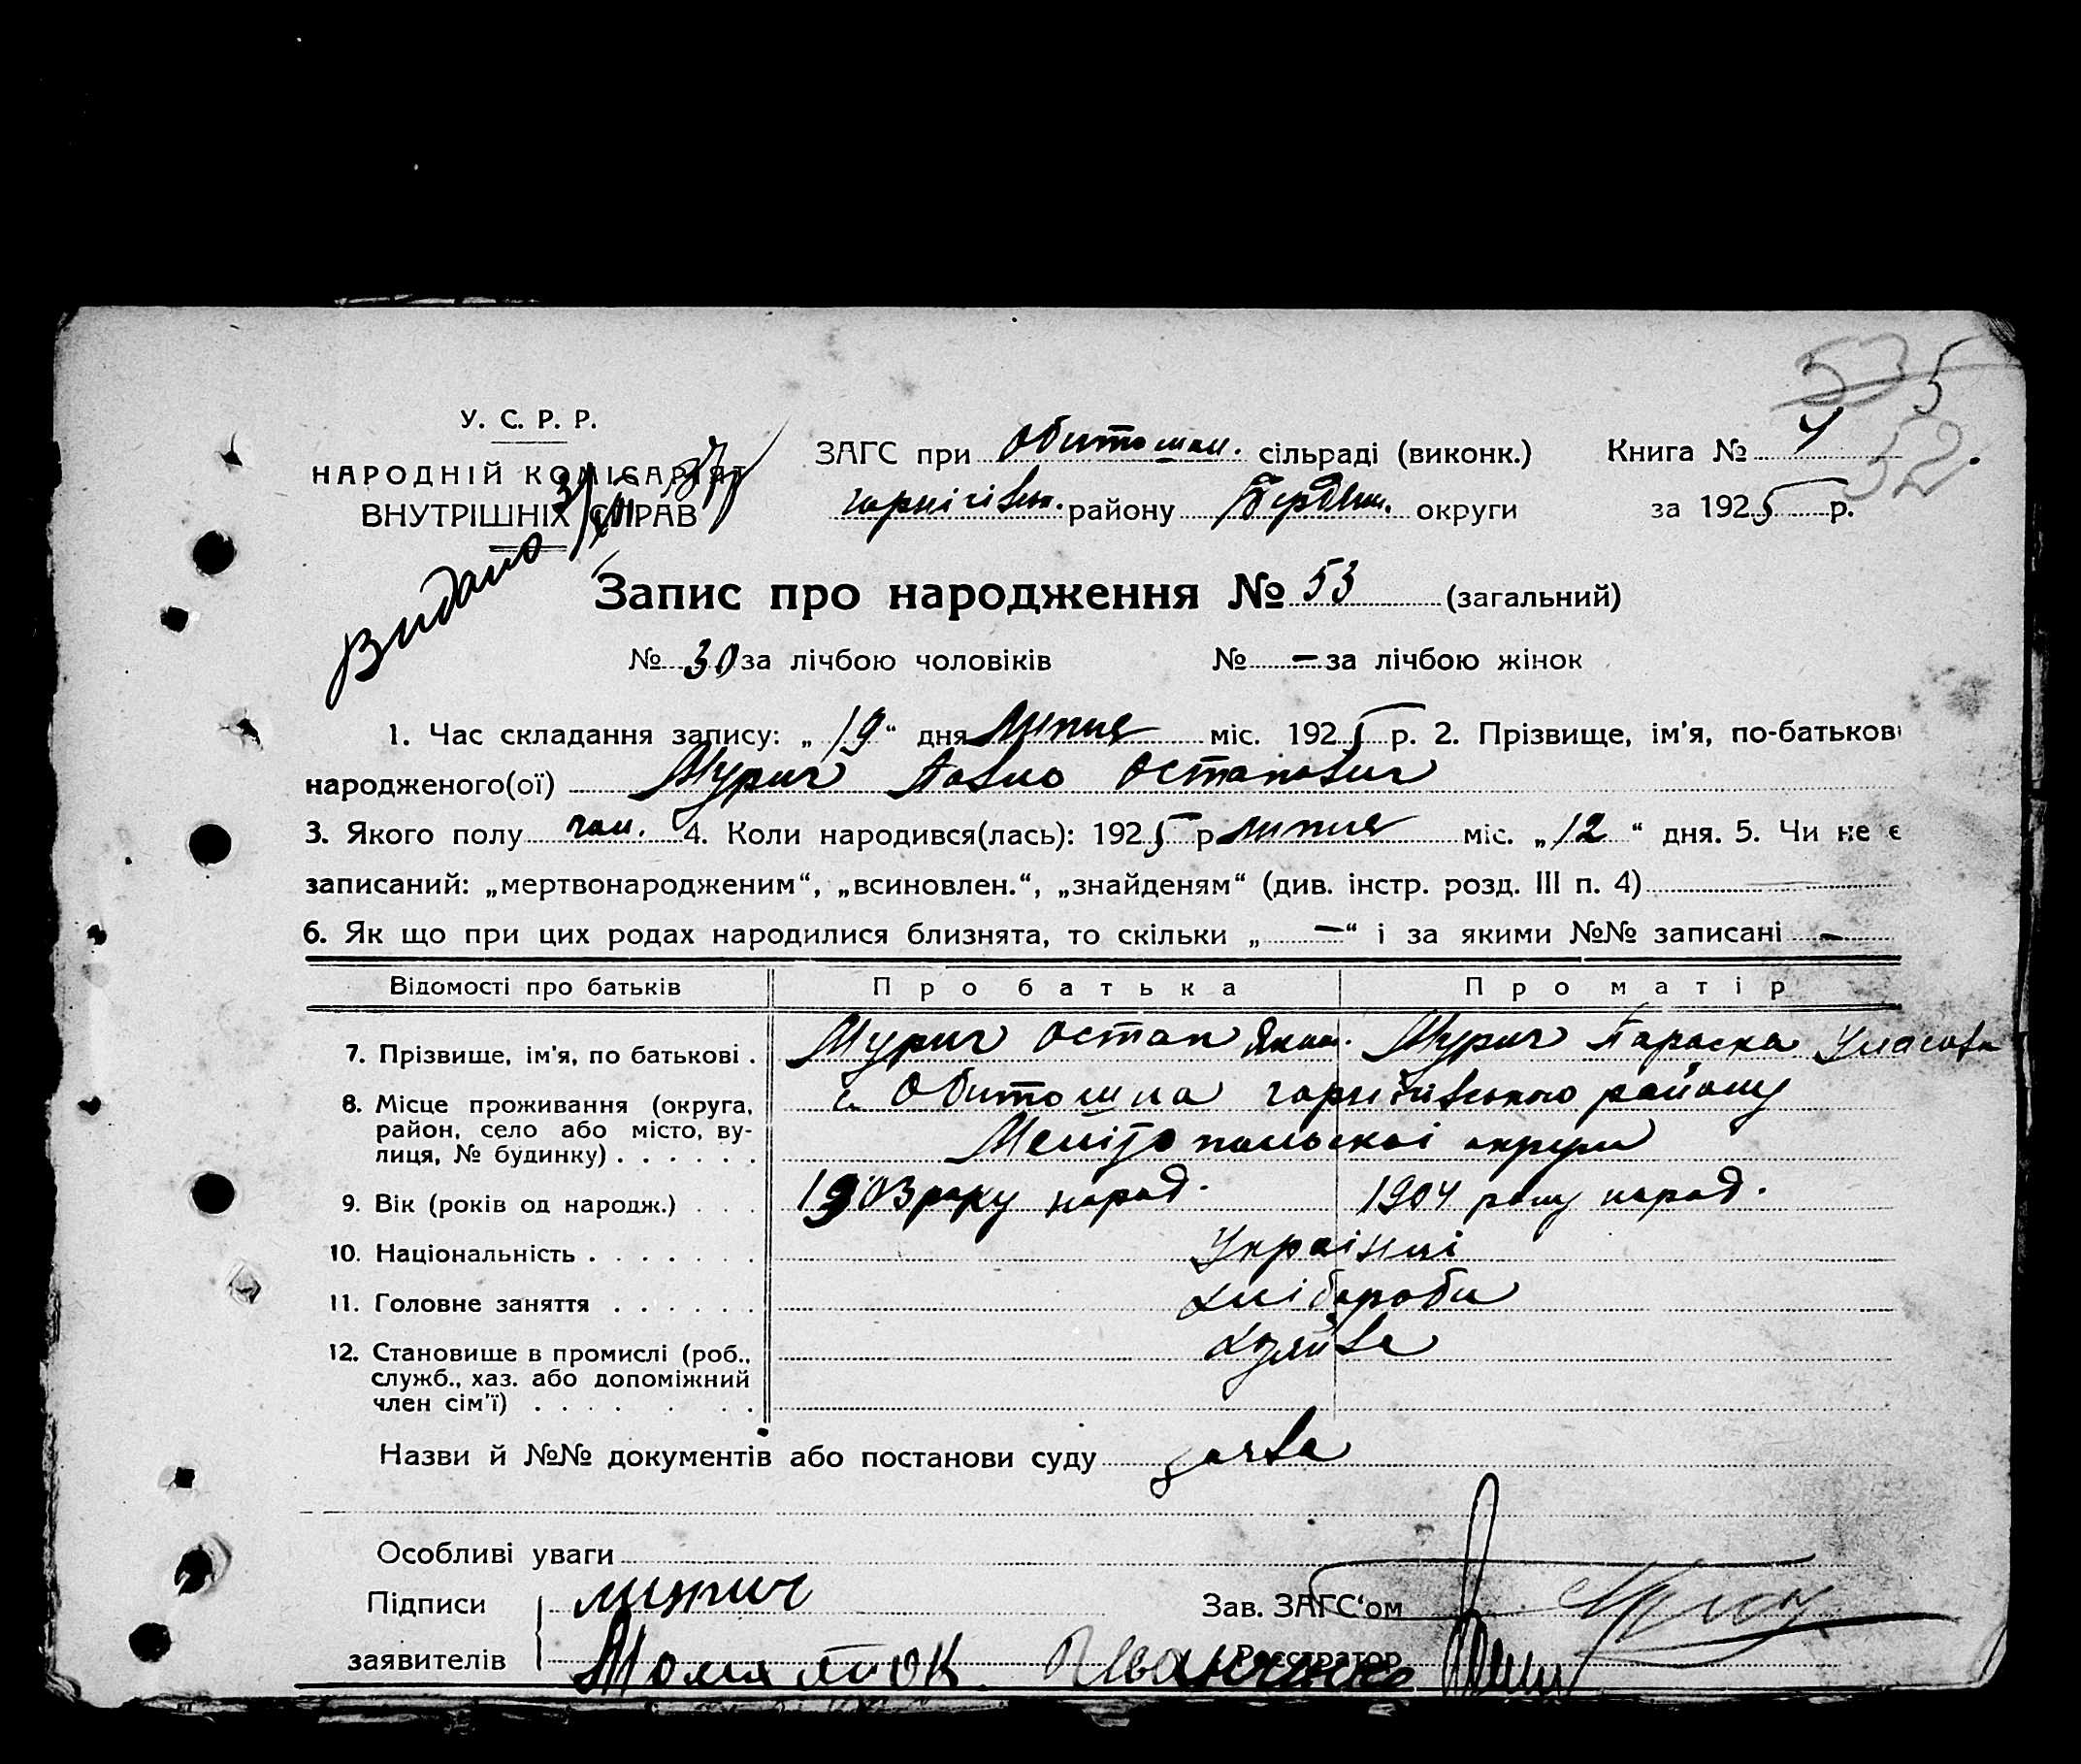 535
52.
У. С. Р. Р.
НАРОДНІЙ КОМІСАРІЯТ
ВНУТРІШНІХ СПРАВ
Видано
ЗАГС при Обиточан. сільраді (виконк.) Книга № 4
Чернігівск. району Бердян. округи за 1925 р.
Запис про народження № 53 (загальний)
№ 30 за лічбою чоловіків № — за лічбою жінок
1. Час складання запису: „ 19 “ дня липня міс. 1925 р. 2. Прізвище, ім'я, по-батькові
народженого(ої) Мурич Павло Остапович
3. Якого полу чол. 4. Коли народився(лась): 1925 р липня міс. „ 12 “ дня. 5. Чи не є
записаний: „мертвонародженим“, „всиновлен.“, „знайденям“ (див. інстр. розд. III п. 4)
6. Як що при цих родах народилися близнята, то скільки „ — “ і за якими №№ записані —
Відомості про батьків Про батька Про матір
7. Прізвище, ім'я, по батькові . Мурич Остап Яким. Мурич Параска
8. Місце проживання (округа, район, село або місто, вулиця, № будинку) . . . . . . с. Обиточна Чернігівського району
Мелітопольскої округи
9. Вік (років од народж.) . . . 1903 року народ. 1904 року народ.
10. Національність . . . . . . . Українці
11. Головне заняття . . . . . . Хлібороби
12. Становище в промислі (роб., служб., хаз. або допоміжний член сім'ї) . . . . . . Хозяйва
Назви й №№ документів або постанови суду заява
Особливі уваги
Підписи мурич Зав. ЗАГС'ом
заявителів Реєстратор